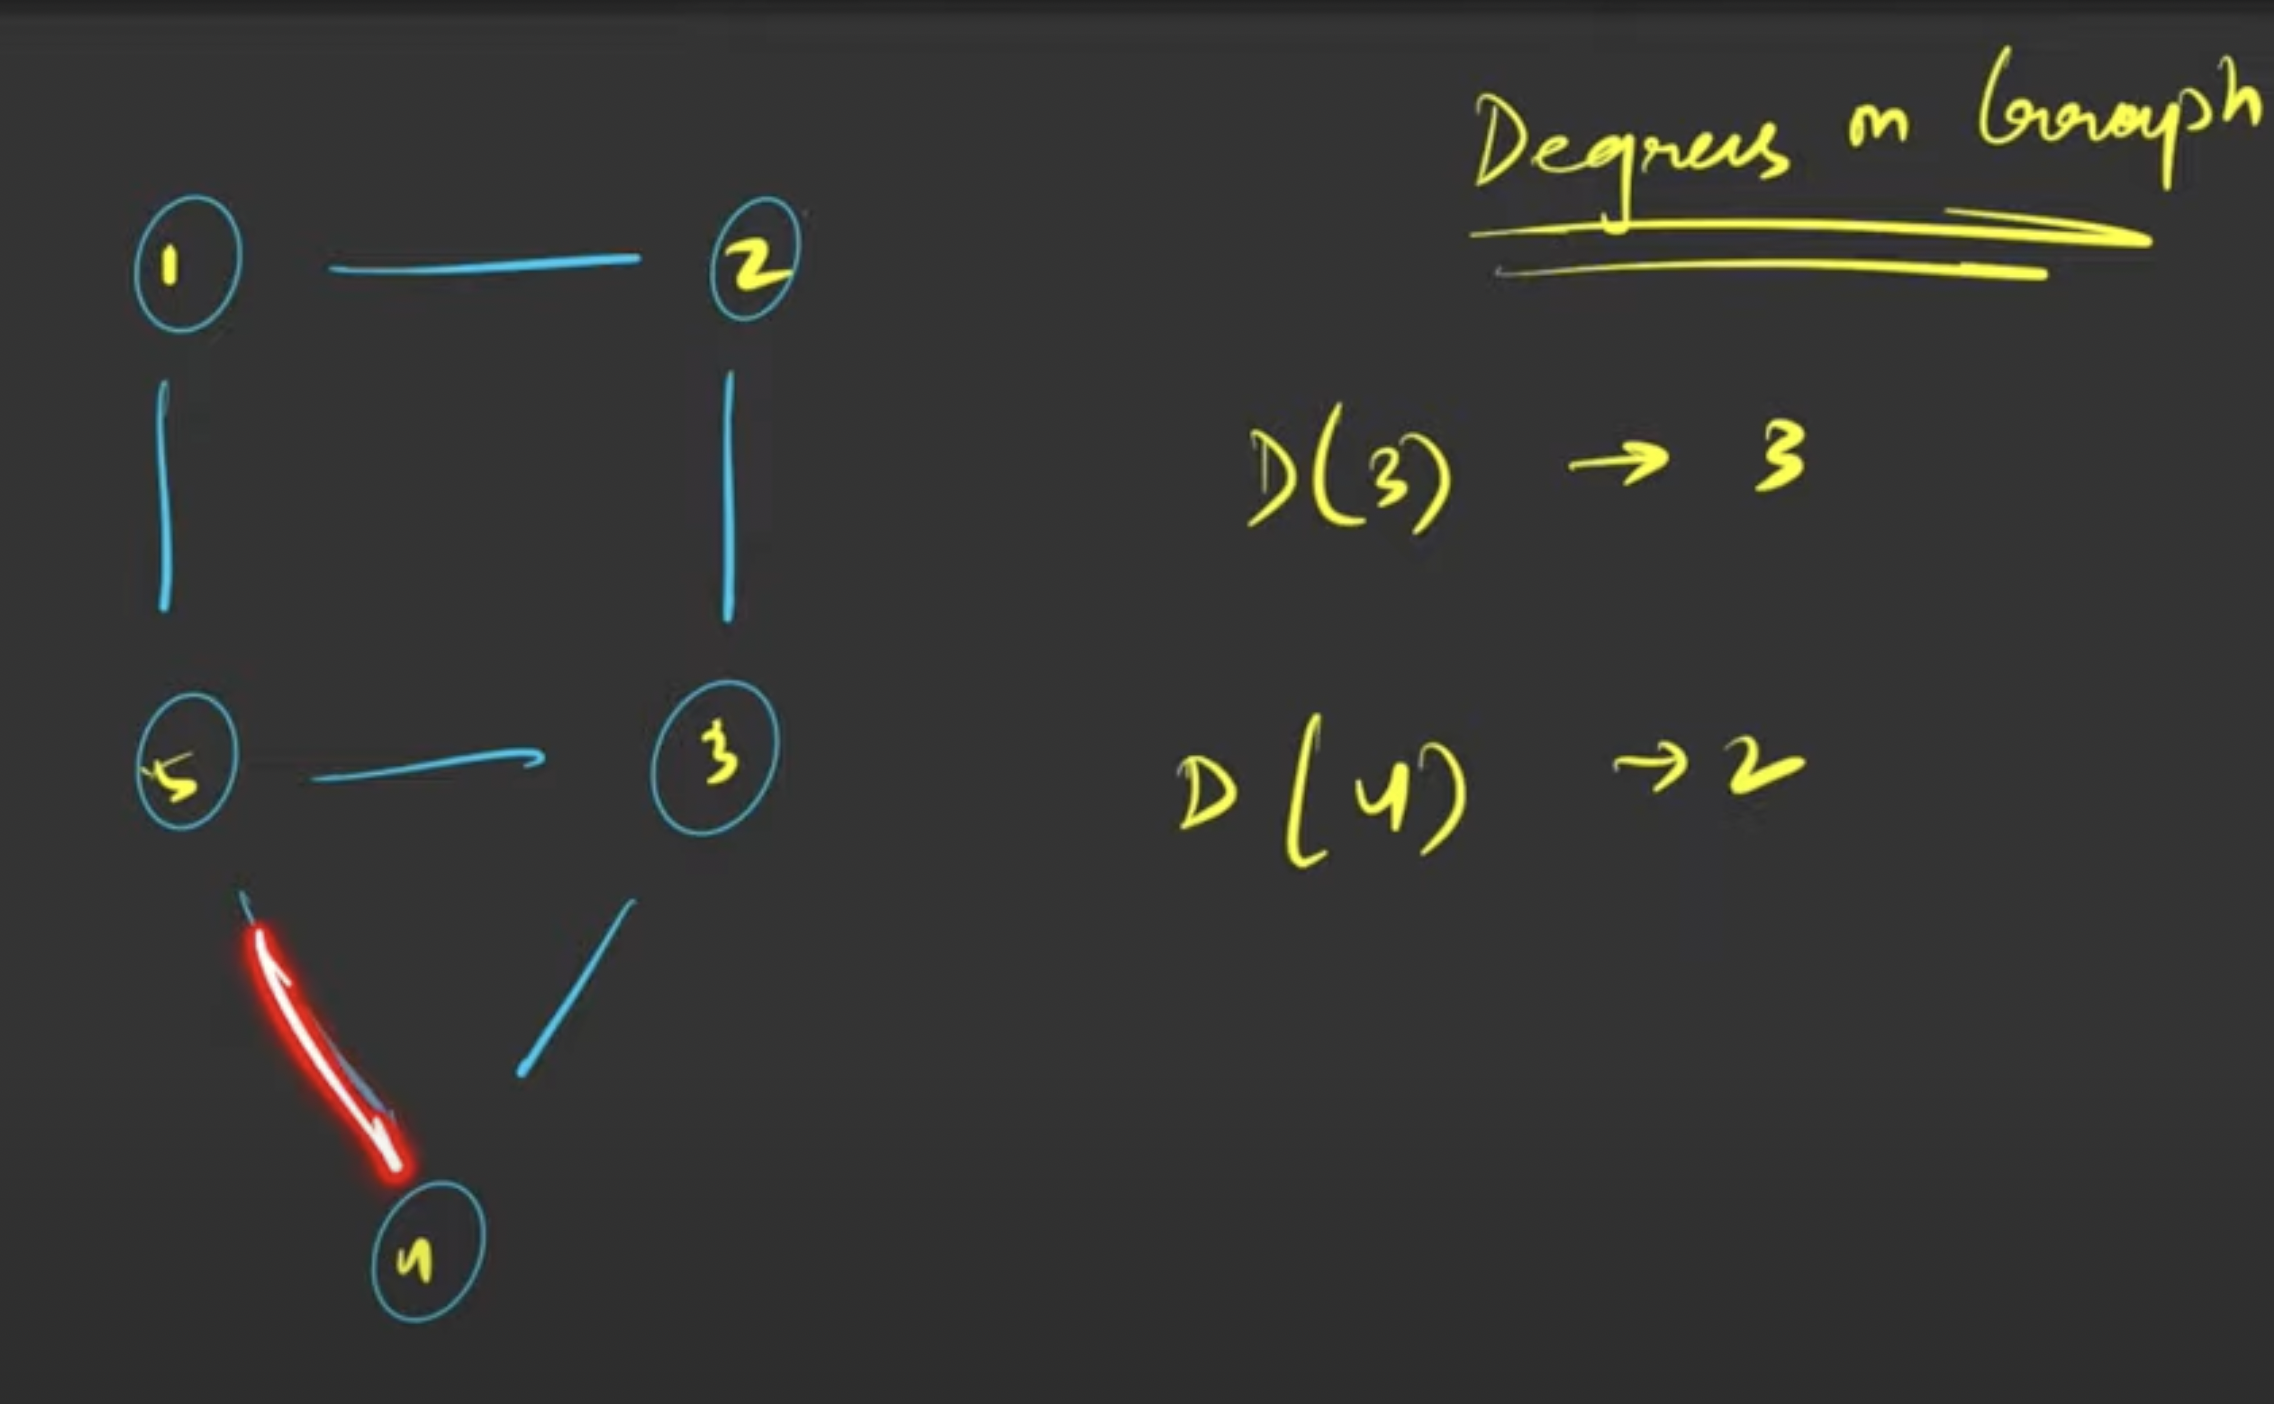 Degrees in Graph
1
2
D(3) → 3
5
3
D(4) → 2
4